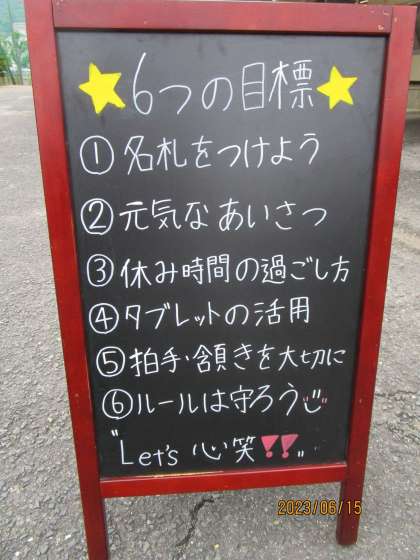 6つの目標
①名札をつけよう
②元気なあいさつ
③休み時間の過ごし方
④タブレットの活用
⑤拍手・頷きを大切に
⑥ルールは守ろう
"Let's 心笑!!"
2023/06/15